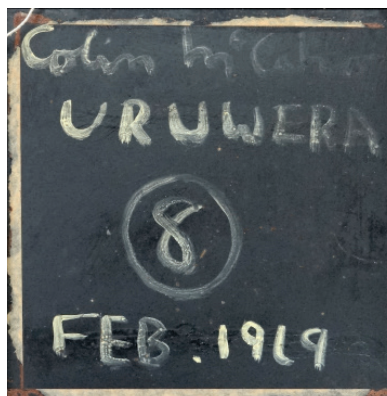 Colin McCahon
URUWERA
8
FEB. 1969